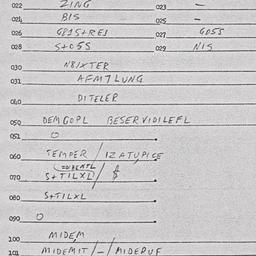 022 ZING 023 –
024 BIS 025 –
026 GBIS+RES 027 GOSS
028 S+OSS 029 NIS
030 N8/XTER
031 AFM7LUNG
040 DITELER
050 DEMGOPL BESERVIDILEFL
051 O
060 TEMPER / IZATUPICE
070 S+TILXL / $
080 S+TILXL
090 O
100 MIDEM
101 MIDEMIT / – / MIDERUF